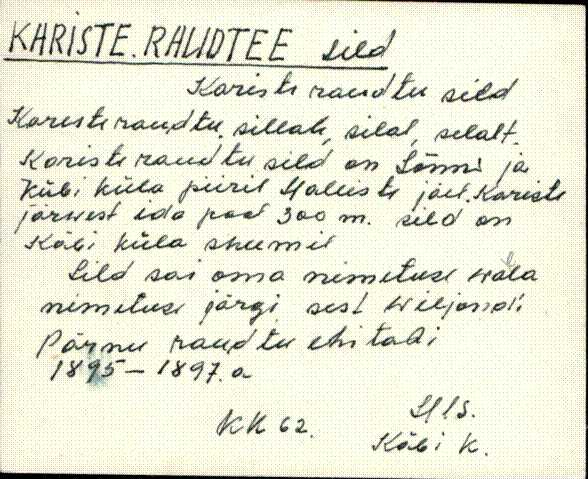 KARISTE. RAUDTEE sild
Kariste raudtee sild
Kariste raudtee, sillale, silal, selalt.
Kariste raudtee sild on Sönni ja
Käbi küla piiril Halliste jael. Kariste
järvest ida pool 300 m. sild on
Käbi küla skeemil
Sild sai oma nimetuse wäla
nimetuse järgi sest Wiljandi
Pärnu raudtee ehitati
1895 – 1897. a
KK 62.
Käbi k.